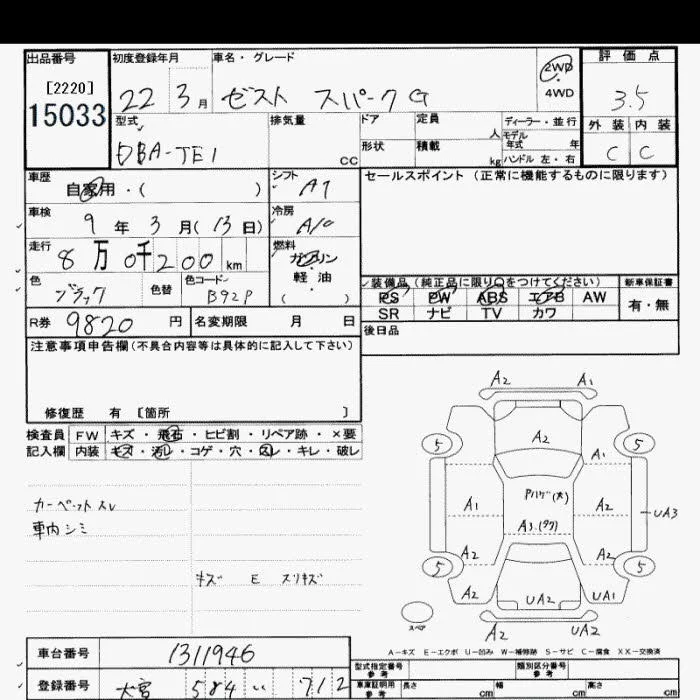 出品番号 初度登録年月 車名・グレード 2WD 評価点
[2220] 22 3月 ゼスト スパークG 4WD 3.5
15033
型式 排気量 ドア 定員 人 ディーラー・並行 外装 内装
モデル年式 年
DBA-TE1 CC 形状 積載 kg ハンドル 左・右 C C
車歴 自家用・( ) シフト AT セールスポイント(正常に機能するものに限ります)
車検 9年 3月(13日) 冷房 A/C
走行 8万0千200km 燃料 ガソリン
軽・油
( )
色 ブラック 色替 色コード B92P 装備品(純正品に限り○をつけてください) 新車保証書
PS PW ABS エアB AW 有・無
SR ナビ TV カワ
R券 9820円 名変期限 月 日 後日品
注意事項申告欄(不具合内容等は具体的に記入して下さい)
修復歴 有 [箇所 ]
検査員 FW キズ・飛石・ヒビ割・リペア跡・×要
記入欄 内装 キズ・汚レ・コゲ・穴・スレ・キレ・破レ
カーペット スレ
車内シミ
キズ E スリキズ
A2 A1
5 A2 5
A1
Pハゲ(大)
A1 A2 UA3
A3.(タワ)
A2 A2
5 5
A2 UA2 UA1
スペア A2 UA2
A-キズ E-エクボ U-凹み W-補修跡 S-サビ C-腐食 XX-交換済
車台番号 1311946
型式指定番号 参考 類別区分番号 参考
登録番号 大宮 584 い 712 車庫証明 参考 長さ cm 幅 cm 高さ cm